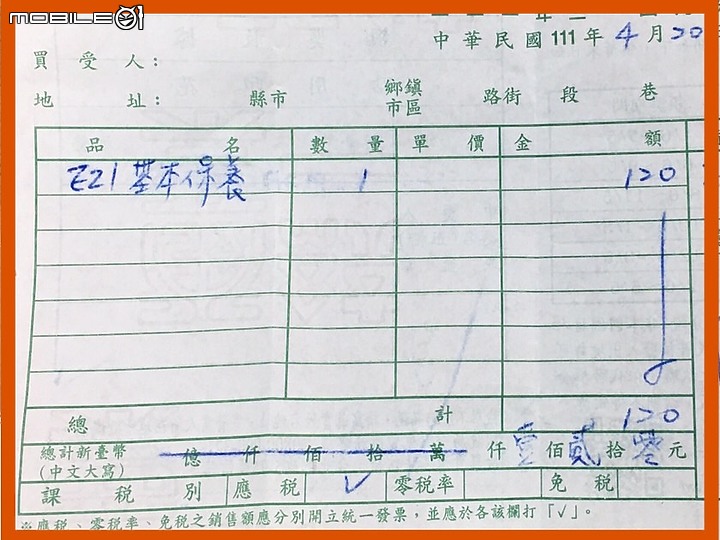 mobile01
中華民國111年4月20
買受人：
地址： 縣市 鄉鎮市區 路街 段 巷
品名 數量 單價 金額
E21基本保養 1 120
總計 120
總計新臺幣(中文大寫) 億仟佰拾萬仟壹佰貳拾零元
課稅別 應稅 ✓ 零稅率 免稅
※應稅、零稅率、免稅之銷售額應分別開立統一發票，並應於各該欄打「✓」。